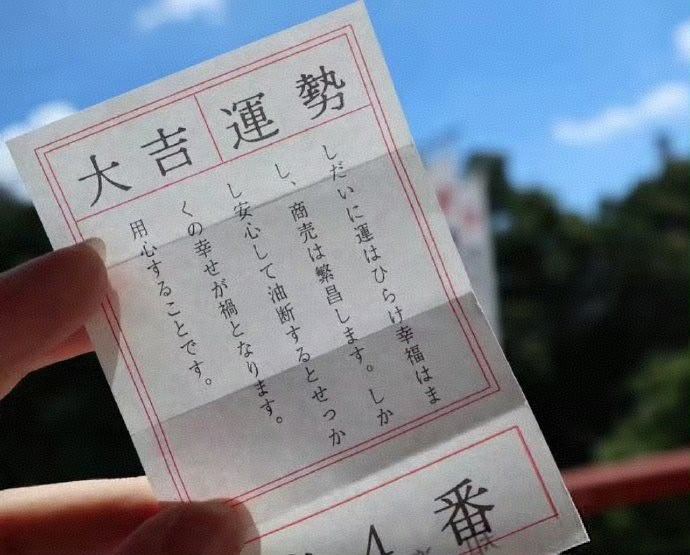 大吉 運勢
しだいに運はひらけ幸福はま
し、商売は繁昌します。しか
し安心して油断するとせつか
くの幸せが禍となります。
用心することです。
4番